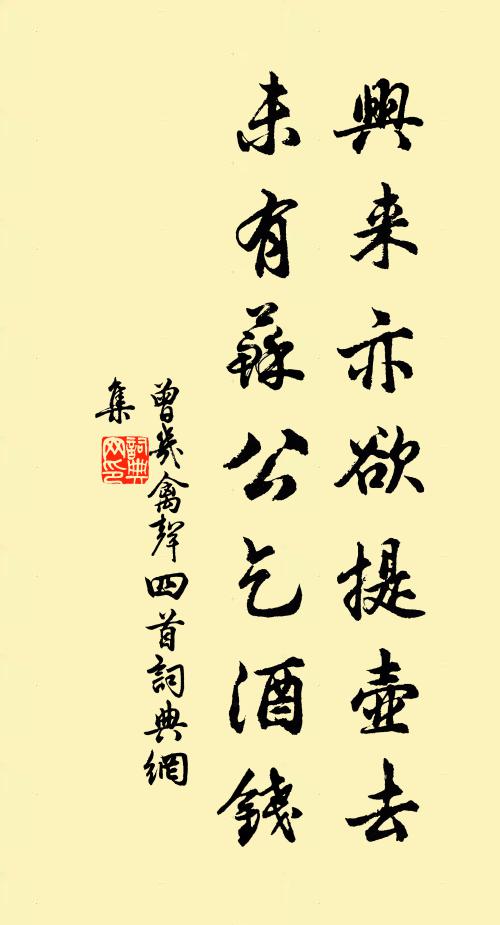 興来亦欲提壺去
未有蘇公乞酒錢
曾幾禽聲四首詞典網
集
詞典
网印